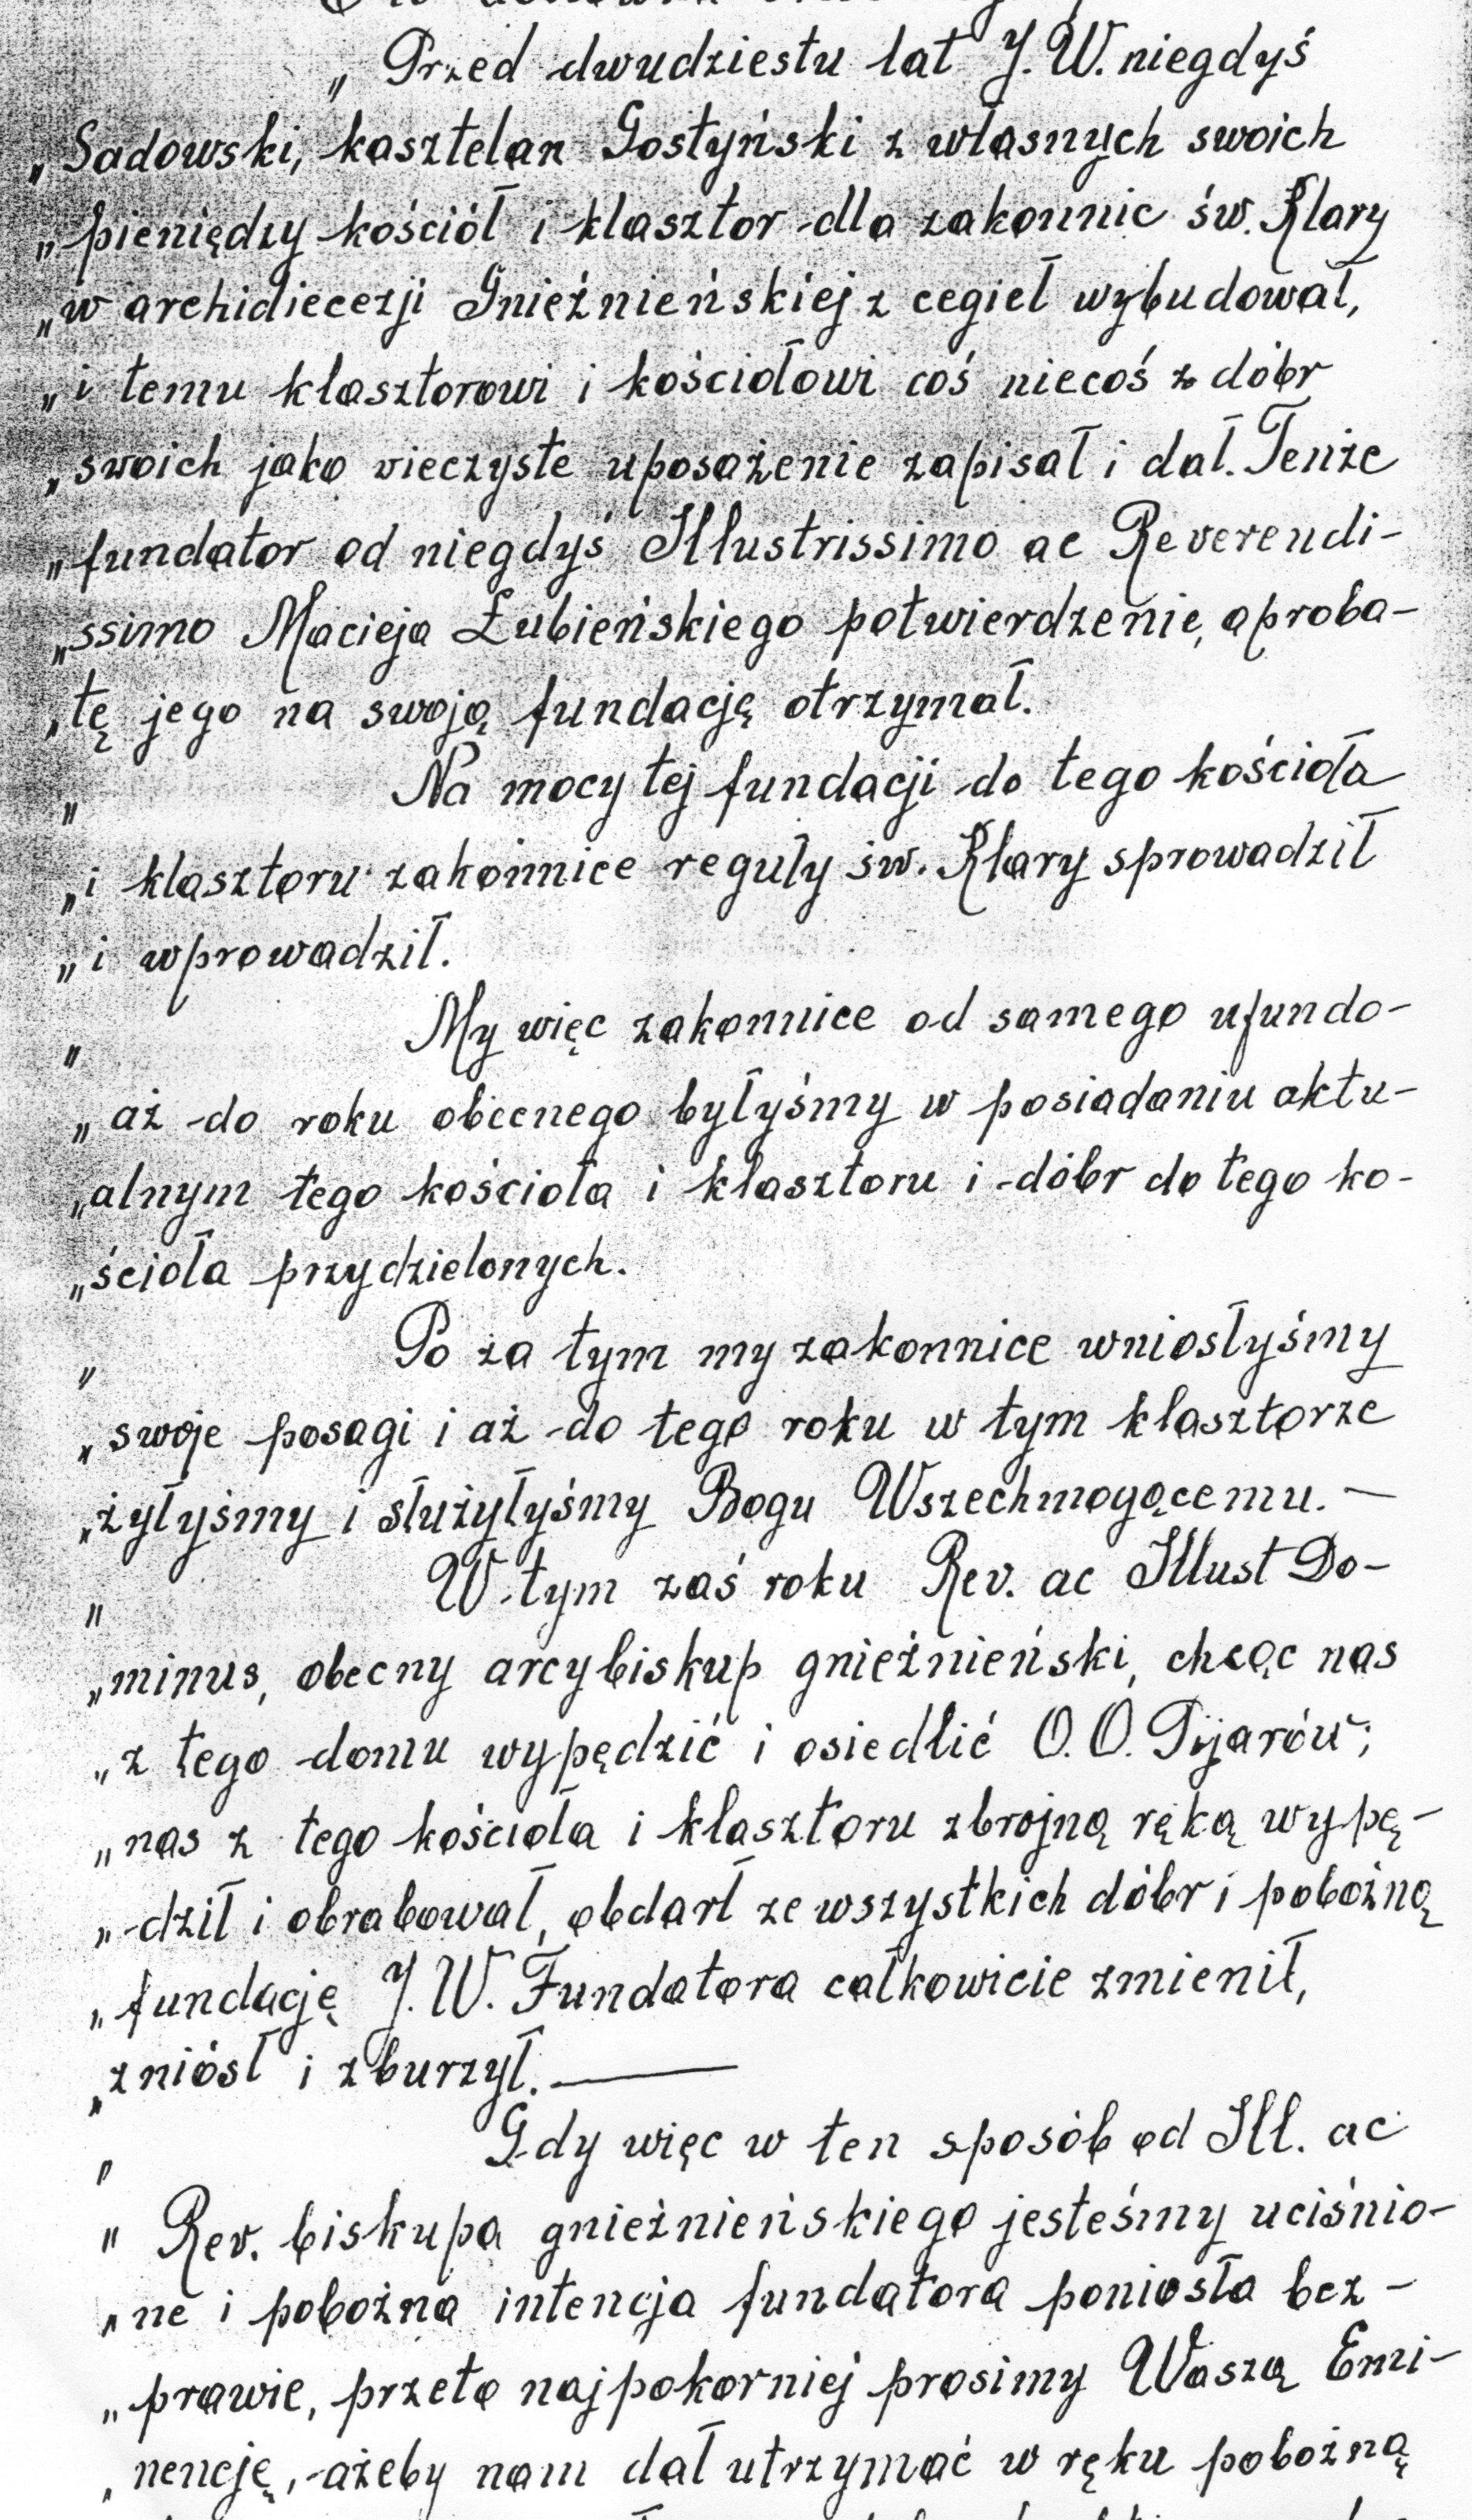 „ Przed dwudziestu lat J. W. niegdyś
„ Sadowski, kasztelan Gostyński z własnych swoich
„ pieniędzy kościół i klasztor dla zakonnic św. Klary
„ w archidiecezji Gnieźnieńskiej z cegieł wybudował,
„ i temu klasztorowi i kościołowi coś niecoś z dóbr
„ swoich jako wieczyste uposażenie zapisał i dał. Tenże
„ fundator od niegdyś Illustrissimo ac Reverendi-
„ ssimo Macieja Łubieńskiego potwierdzenie, aproba-
„ tę jego na swoją fundację otrzymał.
„ Na mocy tej fundacji do tego kościoła
„ i klasztoru zakonnice reguły św. Klary sprowadził
„ i wprowadził.
„ My więc zakonnice od samego ufundo-
„ aż do roku obecnego byłyśmy w posiadaniu aktu-
„ alnym tego kościoła i klasztoru i dóbr do tego ko-
„ ścioła przydzielonych.
„ Po za tym my zakonnice wniosłyśmy
„ swoje posagi i aż do tego roku w tym klasztorze
„ żyłyśmy i służyłyśmy Bogu Wszechmogącemu. —
„ W tym zaś roku Rev. ac Illust Do-
„ minus, obecny arcybiskup gnieźnieński, chcąc nas
„ z tego domu wypędzić i osiedlić O. O. Pijarów;
„ nas z tego kościoła i klasztoru zbrojną ręką wypę-
„ dził i obrabował, obdarł ze wszystkich dóbr i pobożną
„ fundację J. W. Fundatora całkowicie zmienił,
„ zniósł i zburzył. —
„ Gdy więc w ten sposób od Ill. ac
„ Rev. biskupa gnieźnieńskiego jesteśmy uciśnio-
„ ne i pobożna intencja fundatora poniosła bez-
„ prawie, przeto najpokorniej prosimy Waszą Emi-
„ nencję, ażeby nam dał utrzymać w ręku pobożną